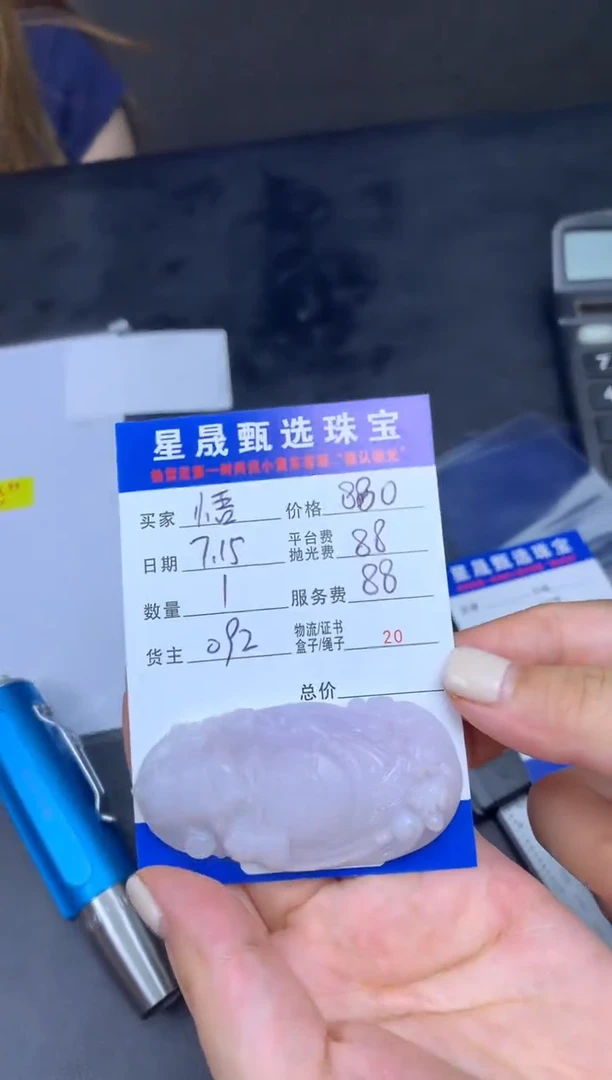 星晟甄选珠宝
买家 悟 价格 880
日期 7.15 平台费 抛光费 88
数量 1 服务费 88
货主 092 物流/证书 盒子/绳子 20
总价
星晟甄选珠宝
7
4